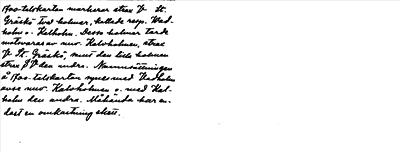 1700-talskartan markerar strax V. St.
Gräskö två holmar, kallade resp. Ked-
holm o. Kalholm. Dessa holmar torde
motsvaras av nuv. Kalvholmen, strax
V. St. Gräskö, samt den lilla holmen
strax V den andra. Namnsättningen
å 1700-talskartan synes med Kedholm
avse nuv. Kalvholmen o. med Kal-
holm den andra. Måhända har en-
dast en omkastning skett.